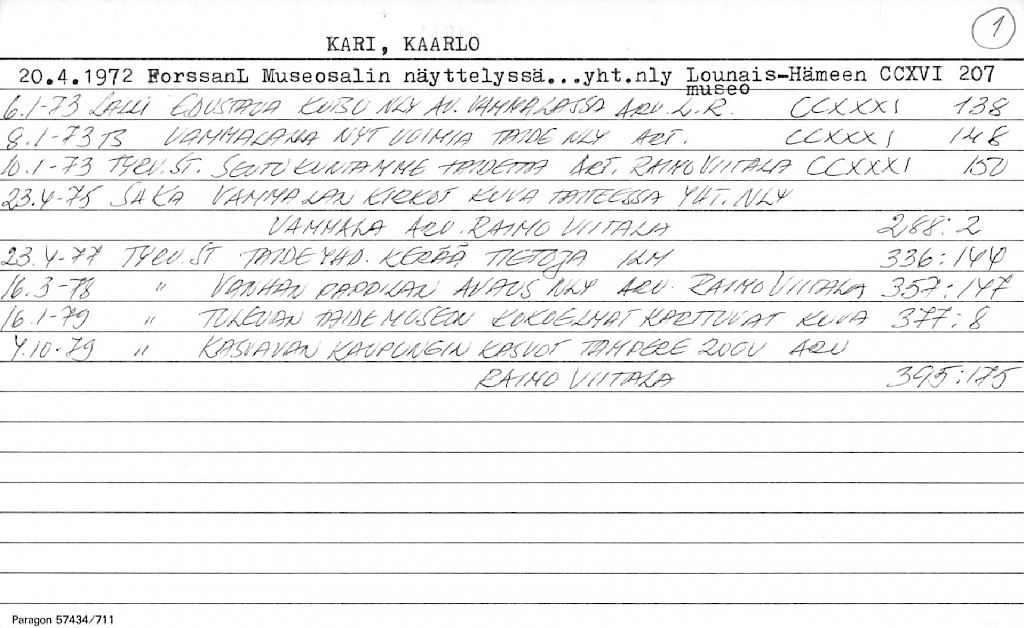 1
KARI, KAARLO
20.4.1972 ForssanL Museosalin näyttelyssä...yht.nly Lounais-Hämeen museo CCXVI 207
6.1-73 LALLI EDUSTAVA KUTSU NLY AV. VAMMALASSA ARV. L.R. CCXXXI 138
8.1-73 TS VAMMALASSA NYT VOIMIA TAIDE NLY ART. CCXXXI 148
10.1-73 TYRV.ST. SEUTUKUNTAMME TAIDETTA ART. RAIMO VIITALA CCXXXI 150
23.4-75 SAKA VAMMALAN KIRKOT KUVA TAITEESSA YHT. NLY
VAMMALA ARV. RAIMO VIITALA 288:2
23.4-77 TYRV.ST TAIDEYHD. KERÄÄ TIETOJA ILM 336:144
16.3-78 " VANHAN PAPPILAN AVAUS NLY ARV. RAIMO VIITALA 357:147
16.1-79 " TULEVAN TAIDEMUSEON KOKOELMAT KARTTUVAT KUVA 377:8
4.10-79 " KASVAVAN KAUPUNGIN KASVOT TAMPERE 200V ARV
RAIMO VIITALA 395:175
Paragon 57434/711